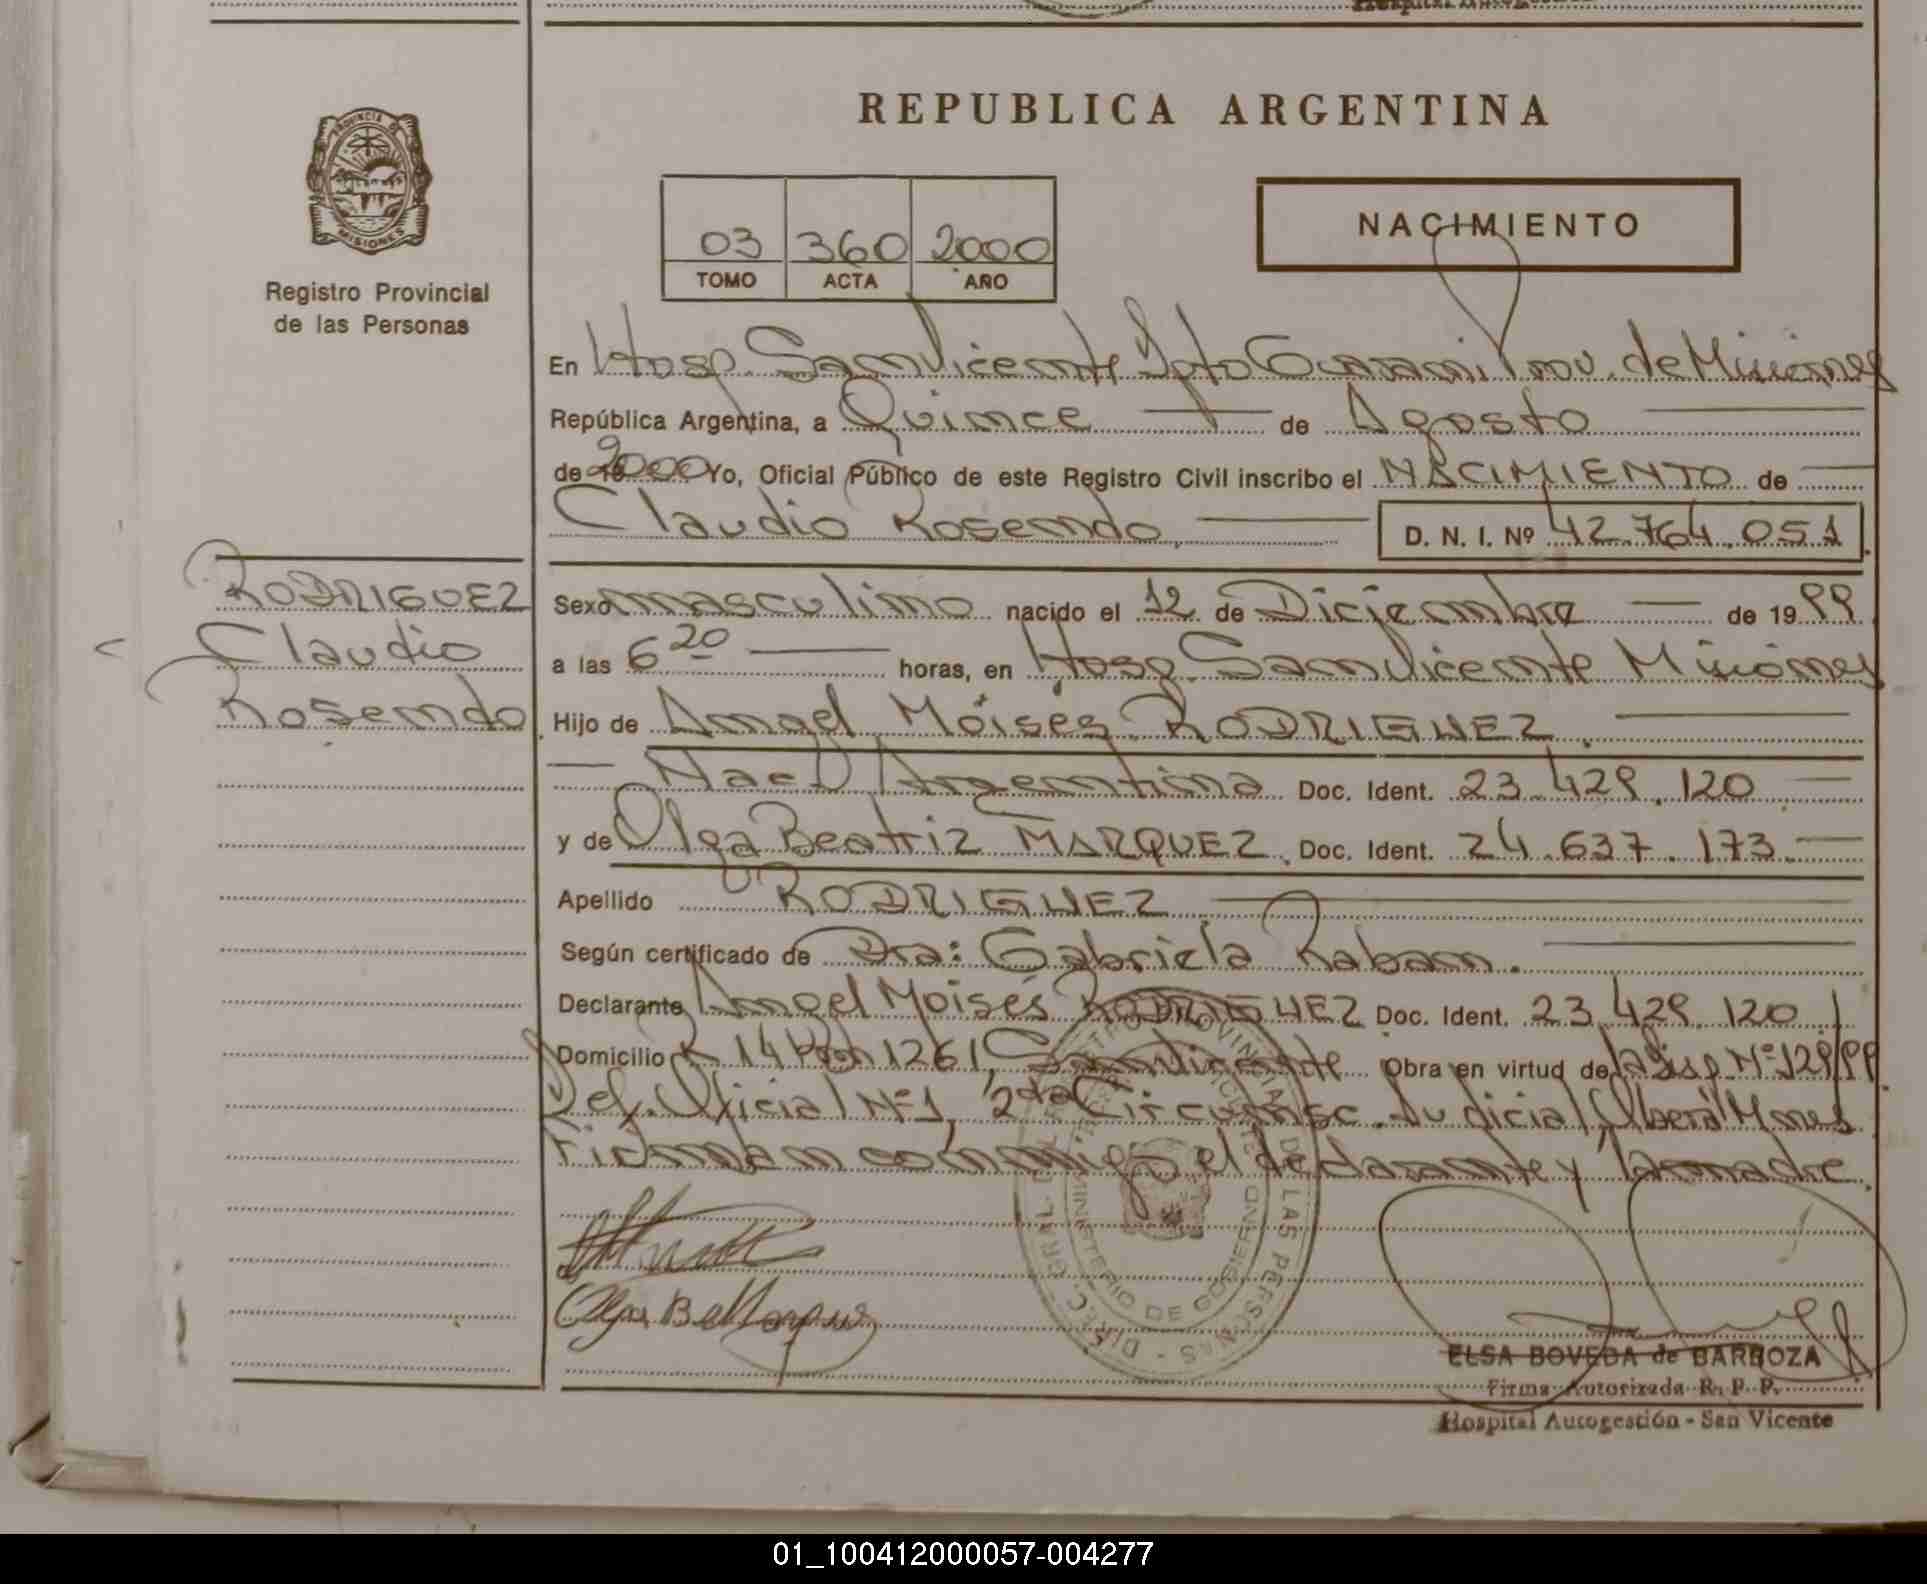 Hospital Autogestión
PROVINCIA DE
MISIONES
Registro Provincial
de las Personas
RODRIGUEZ
Claudio
Rosendo
REPUBLICA ARGENTINA
03 360 2000
TOMO ACTA AÑO
NACIMIENTO
En Hosp. San Vicente Dpto Guarani Prov. de Misiones
República Argentina, a Quince de Agosto
de 2000 Yo, Oficial Público de este Registro Civil inscribo el NACIMIENTO de
Claudio Rosendo. D. N. I. Nº 42.764.051
Sexo masculino nacido el 12 de Diciembre de 1999
a las 6 20 horas, en Hosp. San Vicente Misiones
Hijo de Angel Moisés RODRIGUEZ.
Nac. Argentina Doc. Ident. 23.429.120
y de Olga Beatriz MARQUEZ. Doc. Ident. 24.637.173
Apellido RODRIGUEZ
Según certificado de Dra: Gabriela Raban.
Declarante Angel Moisés RODRIGUEZ Doc. Ident. 23.429.120
Domicilio R. 14 Km 1261, San Vicente Obra en virtud de la Disp. Nº 129/99
Def. Oficial Nº 1, 2da Circunsc. Judicial Oberá Mnes
Firman conmigo el declarante y la madre.
DIREC. GRAL. DEL REGISTRO PROVINCIAL DE LAS PERSONAS
MINISTERIO DE GOBIERNO
ELSA BOVEDA de BARBOZA
Firma Autorizada R. P. P.
Hospital Autogestión - San Vicente
01_100412000057-004277